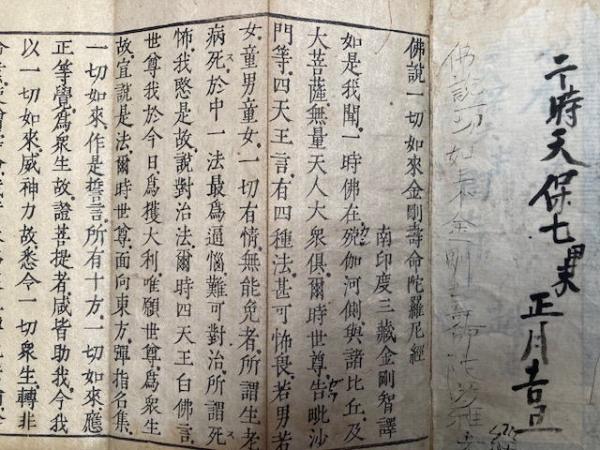 于時天保七 正月吉日
佛說一切如來金剛壽
佛說一切如來金剛壽命陀羅尼經
南印度三藏金剛智譯
如是我聞一時佛在殑伽河側與諸比丘及
大菩薩無量天人大衆俱爾時世尊告毗沙
門等四天王言有四種法甚可怖畏若男若
女童男童女一切有情無能免者所謂生老
病死於中一法最爲逼惱難可對治所謂死
怖我愍是故說對治法爾時四天王白佛言
世尊我於今日爲獲大利唯願世尊爲衆生
故宜說是法爾時世尊面向東方彈指名集
一切如來作是誓言所有十方一切如來應
正等覺爲衆生故證菩提者咸皆助我令我
以一切如來威神力故悉令一切衆生轉非